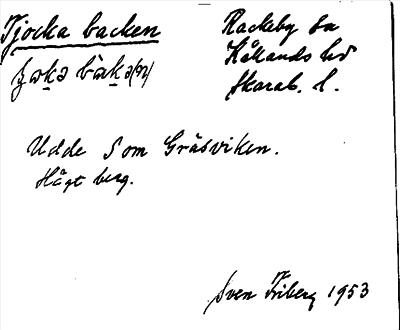 Tjocka backen
Rackeby sn
Kållands hd
Skarab. l.
Udde S om Gräsviken.
Högt berg.
Sven Friberg 1953